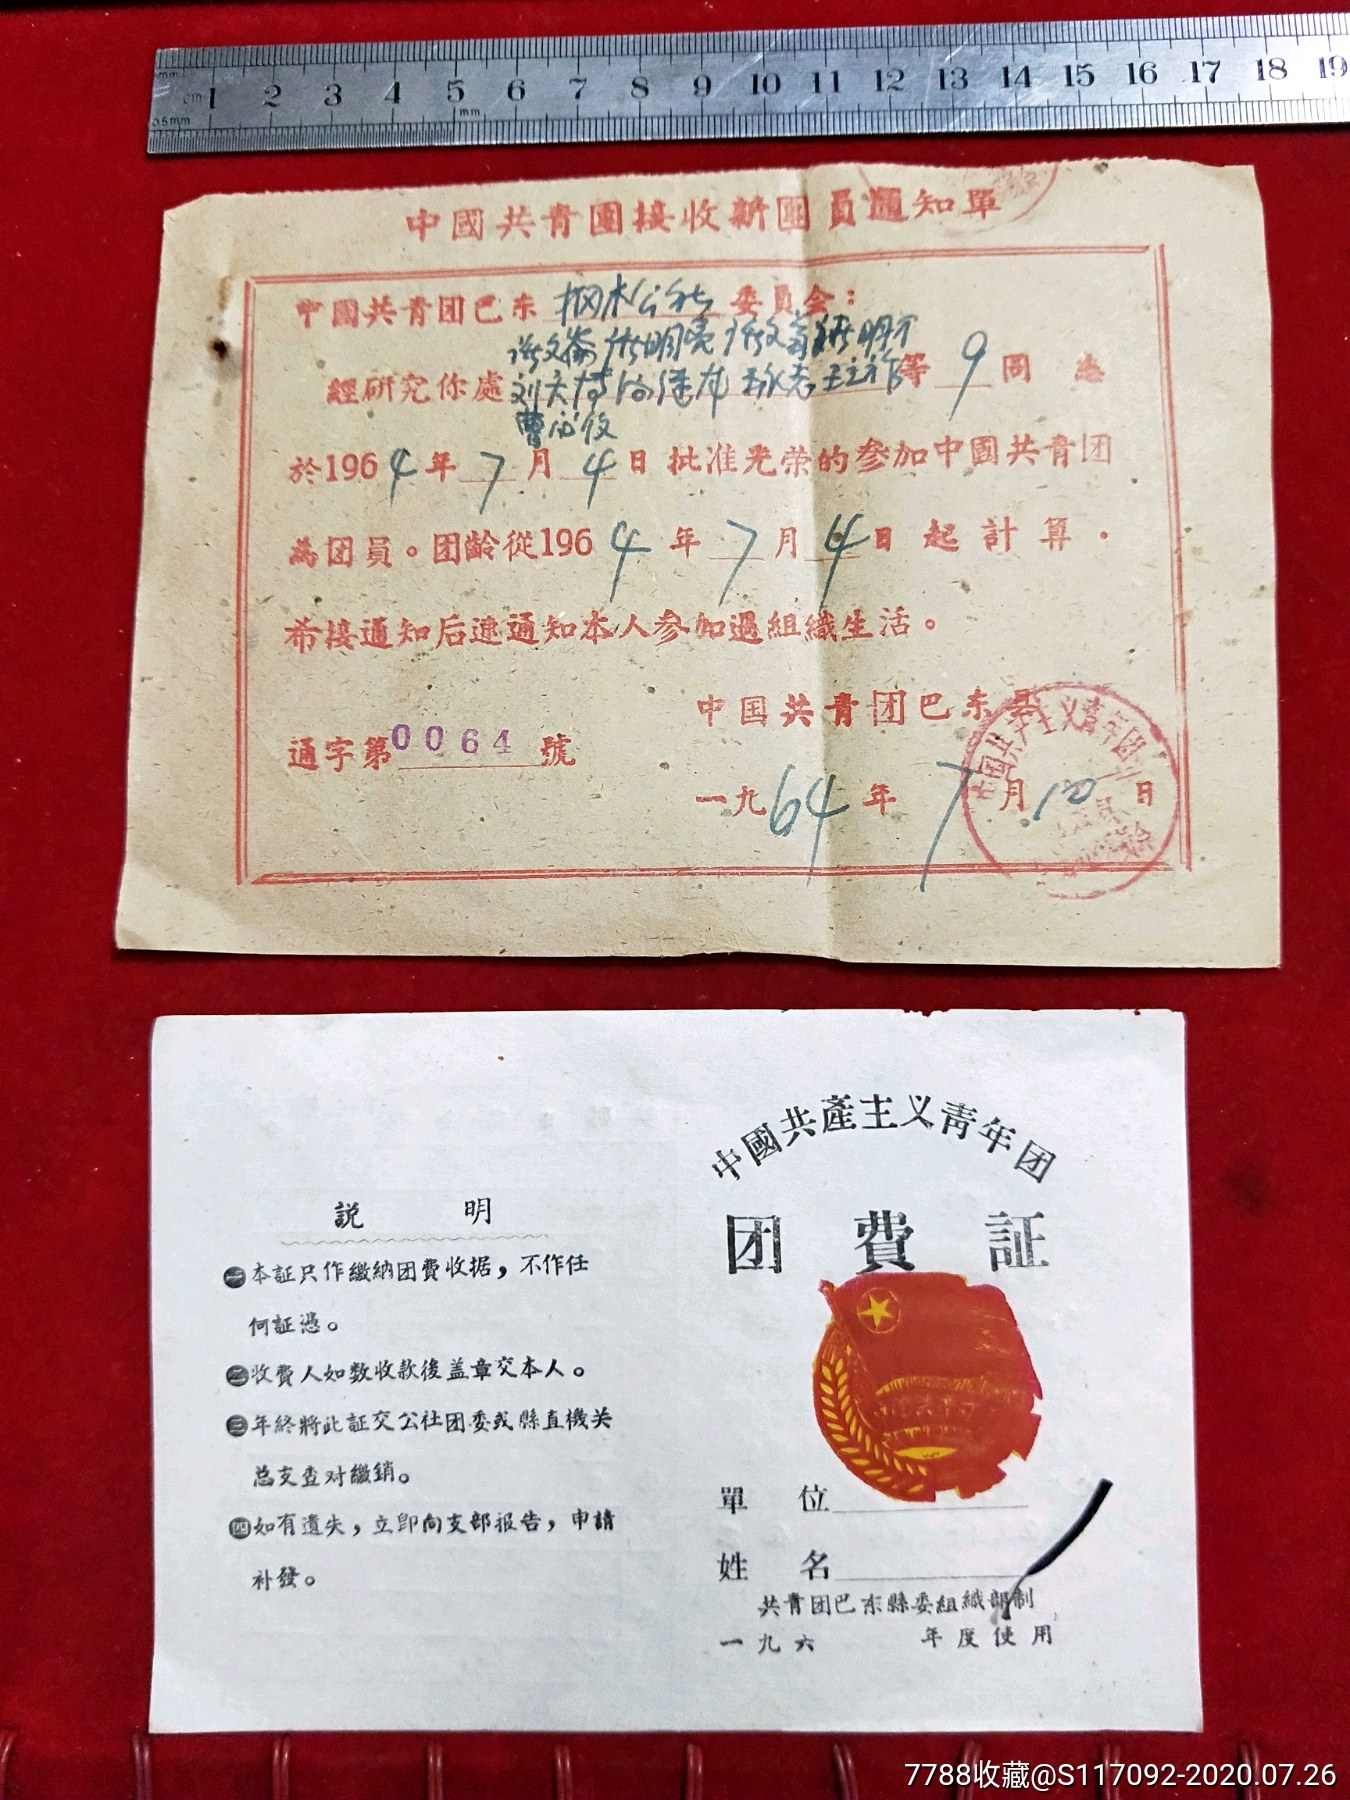 mm
cm 1 2 3 4 5 6 7 8 9 10 11 12 13 14 15 16 17 18 19
0.5mm
mm
中國共青團接收新團員通知單
中國共青团巴东 公社 委員会：
經研究你處 等 9 同志
於1964年7月4日批准光荣的参加中國共青团
為团員。团齡從1964年7月4日起計算．
希接通知后速通知本人参加過組織生活。
中国共青团巴东
通字第0064號
一九64年7月10日
中国共产主义青年团
中國共產主义青年团
团費証
單位
姓名
共青团巴东縣委組織部制
一九六 年度使用
説明
一本証只作繳納团費收据，不作任
何証憑。
二收費人如数收款後盖章交本人。
三年終將此証交公社团委或縣直機关
总支查对繳銷。
四如有遺失，立卽向支部报告，申請
补發。
7788收藏@S117092-2020.07.26